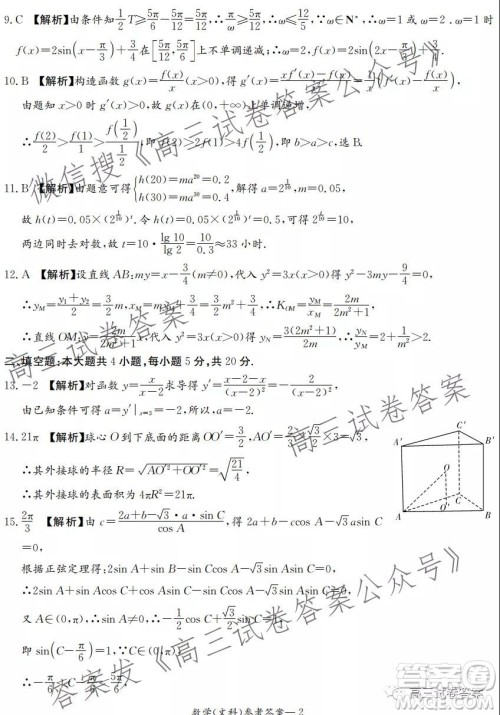 9. C 【解析】由条件知 1/2 T ≥ 5π/6 − 5π/12 = 5π/12, ∴ π/ω ≥ 5π/12, ∴ ω ≤ 12/5. ∵ ω∈N*, ∴ ω=1 或 ω=2. 当 ω=1 时
f(x)=2sin(x−π/3)+3/4 在[5π/12, 5π/6]上不单调递减; ∴ ω=2, f(x)=2sin(2x−π/3)+3/4.
10. B 【解析】构造函数 g(x)=f(x)/x (x>0), 得 g′(x)=
由题知 x>0 时 g′(x)>0, 故 g(x)在(0,+∞)上单调递增.
∴ f(2)/2 > f(1)/1 > f(1/2)/(1/2), 即 f(2)>2f(1)>4f(1/2), 即 b>a>c, 选 B.
11. B 【解析】由题意可得{h(20)=ma^20=0.2 h(30)=ma^30=0.4, 解得 a=2^(1/10), m=0.05,
故 h(t)=0.05×(2^(1/10))^t. 令 h(t)=0.05×(2^(1/10))^t=0.5, 可得 2^(t/10)=10,
两边同时去对数, 故 t=10·lg10/lg2=10/0.3≈33 小时.
12. A 【解析】设直线 AB: my=x−3/4(m≠0), 代入 y²=3x(x>0)得 y²−3my−9/4=0,
∴ y_M=(y₁+y₂)/2=3/2 m, x_M=3/2 m²+3/4, ∴ K_OM=y_M/x_M=2m/(2m²+1),
∴直线 OM: y=2m/(2m²+1) x, 代入 y²=3x(x>0)得 y_N=3(2m²+1)/2m, ∴ y_N/y_M=2+1/m²>2.
二、填空题:本大题共 4 小题,每小题 5 分,共 20 分.
13. −2 【解析】对函数 y=x/(x−2)求导得 y′=(x−2−x)/(x−2)²=−2/(x−2)²,
由已知条件可得 a=y′|x=3=−2, 所以, a=−2.
14. 21π 【解析】球心 O 到下底面的距离 OO′=3/2, AO′=2/3×√3/2×3=√3,
∴其外接球的半径 R=√(AO′²+OO′²)=√(21/4),
∴其外接球的表面积为 4πR²=21π.
C′
A′
B′
O
C
O′
A
B
15. 2π/3 【解析】由 c=(2a+b−√3·a·sin C)/cos A, 得 2a+b−√3 asin C−ccos A
=0,
根据正弦定理得: 2sin A+sin B−√3 sin Asin C−sin Ccos A=0,
∴ 2sin A+sin Acos C+cos Asin C−cos Asin C−√3 sin Asin C=0,
又 A∈(0,π), ∴ sin A≠0, ∴ −1/2 cos C+√3/2 sin C=1,
即 sin(C−π/6)=1. ∵ C∈(0,π), ∴
数学(文科)参考答案—2
微信搜《高三试卷答案公众号》
高三试卷答案
答案发《高三试卷答案公众号》
高三试卷答案